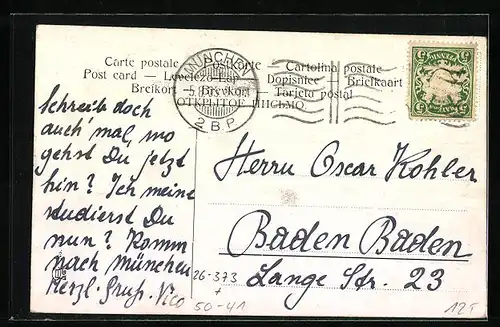 Carte postale — Postkarte — Cartolina postale
Post card — Levelező-Lap Dopisnice Briefkaart
Brefkort — Brevkort Tarjeta postal
ОТКРЫТОЕ ПИСЬМО.
MÜNCHEN
2 B.P.
BAYERN
5 5
Schreib doch
auch mal, wo
gehst Du jetzt
hin? Ich meine
studierst Du
nun? Komm
nach München
Herzl. Gruß. Vico
Herrn Oscar Kohler
Baden Baden
Lange Str. 23
26-373
50-41
125